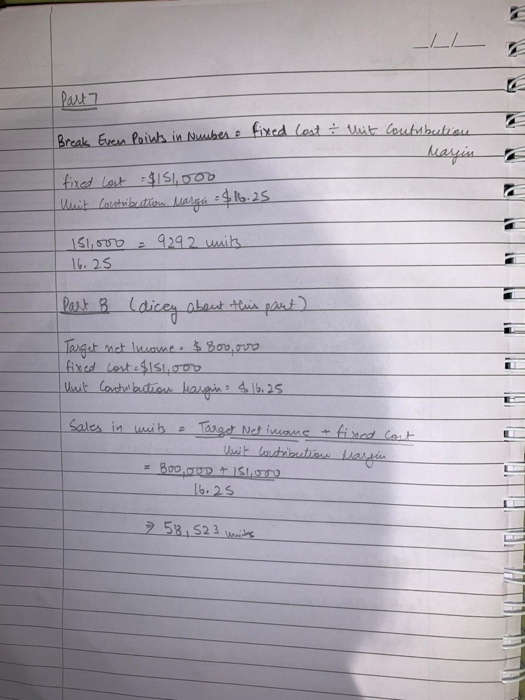 _/_/_
Part 7
Break Even Points in Number = fixed Cost ÷ Unit Contribution
Margin
fixed Cost = $151,000
Unit Contribution Margin = $16.25
151,000 = 9292 units
16.25
Part 8 (dicey about this part)
Target net Income = $800,000
fixed Cost = $151,000
Unit Contribution Margin = $16.25
Sales in units = Target Net income + fixed Cost
Unit Contribution Margin
= 800,000 + 151,000
16.25
⇒ 58,523 units